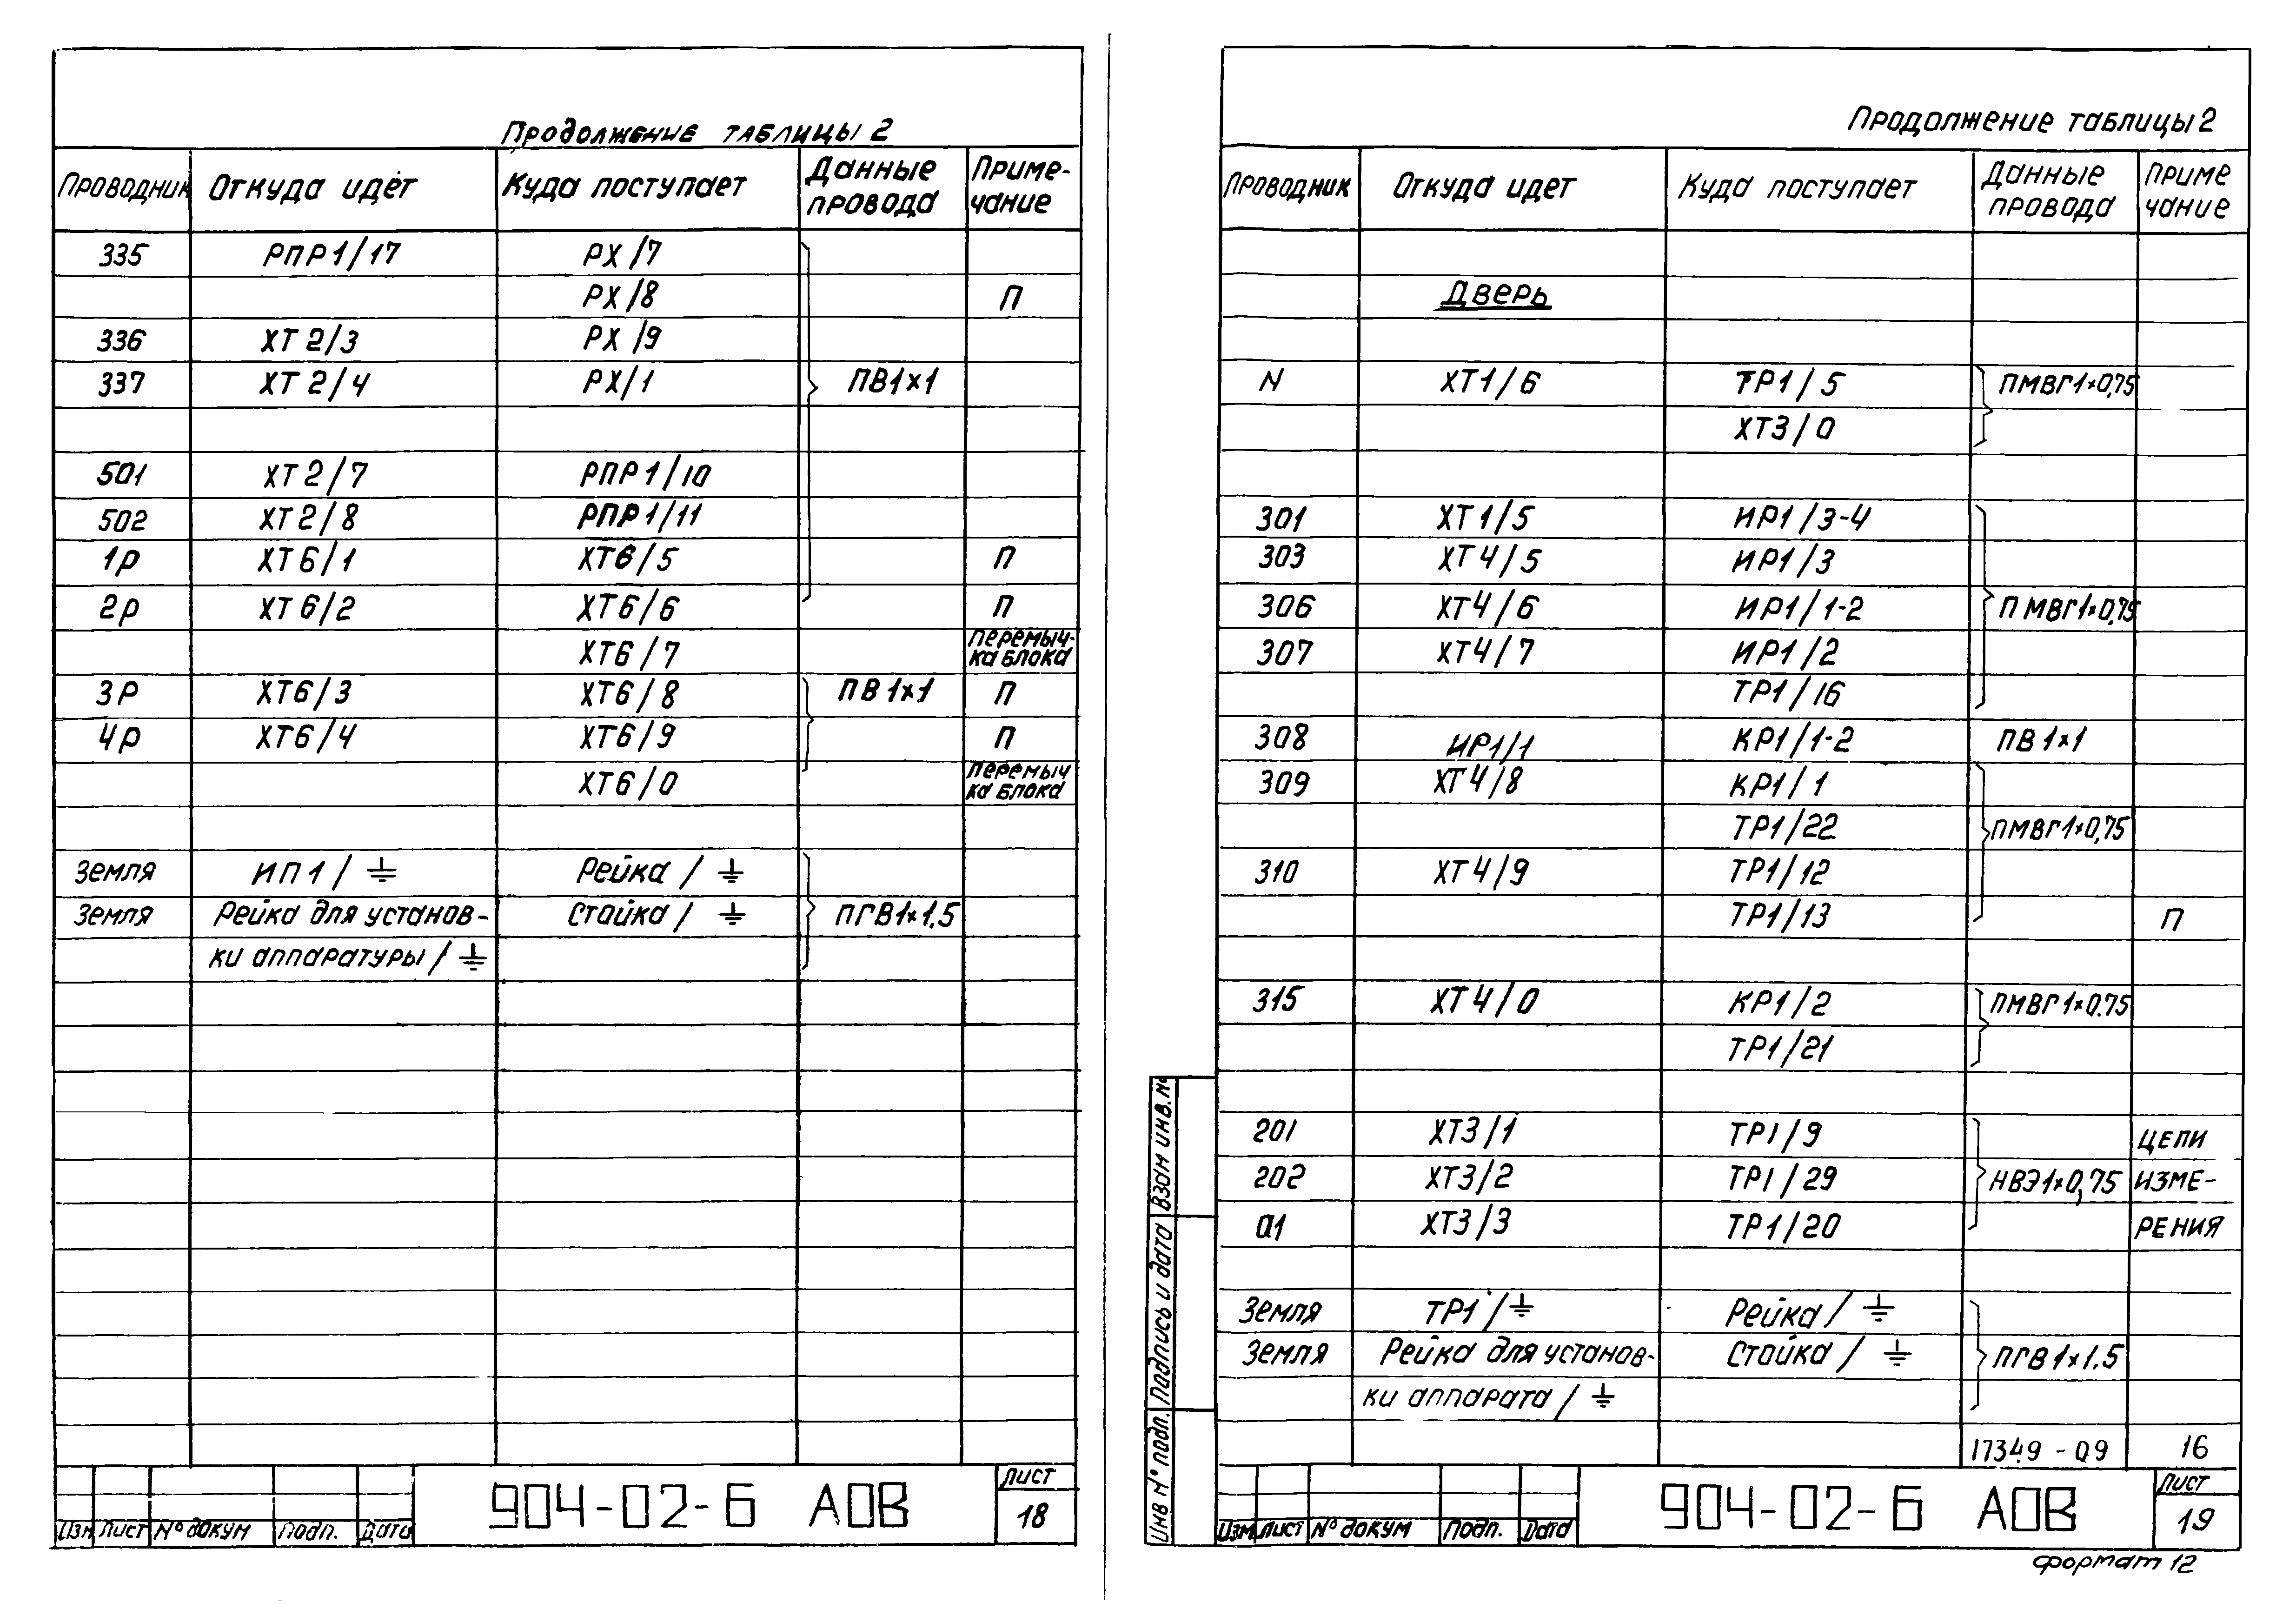 Продолжение таблицы 2
Проводник Откуда идёт Куда поступает Данные провода Приме-чание
335 РПР1/17 РХ/7
РХ/8 П
336 ХТ2/3 РХ/9
337 ХТ2/4 РХ/1 ПВ1×1
501 ХТ2/7 РПР1/10
502 ХТ2/8 РПР1/11
1р ХТ6/1 ХТ6/5 П
2р ХТ6/2 ХТ6/6 П
ХТ6/7 Перемыч-ка блока
3Р ХТ6/3 ХТ6/8 ПВ1×1 П
4р ХТ6/4 ХТ6/9 П
ХТ6/0 Перемыч ка блока
Земля ИП1/⏚ Рейка/⏚
Земля Рейка для установ- Стойка/⏚ ПГВ1×1.5
ки аппаратуры/⏚
Изм Лист № докум Подп. Дата
904-02-6 АОВ
Лист
18
Продолжение таблицы 2
Проводник Откуда идет Куда поступает Данные провода Приме чание
Дверь
N ХТ1/6 ТР1/5 ПМВГ1×0,75
ХТ3/0
301 ХТ1/5 ИР1/3-4
303 ХТ4/5 ИР1/3
306 ХТ4/6 ИР1/1-2 ПМВГ1×0,75
307 ХТ4/7 ИР1/2
ТР1/16
308 ИР1/1 КР1/1-2 ПВ1×1
309 ХТ4/8 КР1/1
ТР1/22 ПМВГ1×0,75
310 ХТ4/9 ТР1/12
ТР1/13 П
315 ХТ4/0 КР1/2 ПМВГ1×0.75
ТР1/21
201 ХТ3/1 ТР1/9 ЦЕПИ
202 ХТ3/2 ТР1/29 НВЭ1×0,75 ИЗМЕ-
а1 ХТ3/3 ТР1/20 РЕНИЯ
Земля ТР1/⏚ Рейка/⏚
Земля Рейка для установ- Стойка/⏚ ПГВ1×1.5
ки аппарата/⏚
17349-09 16
Взам инв. №
Подпись и дата
Инв № подл.
Изм Лист № докум Подп. Дата
904-02-6 АОВ
Лист
19
Формат 12